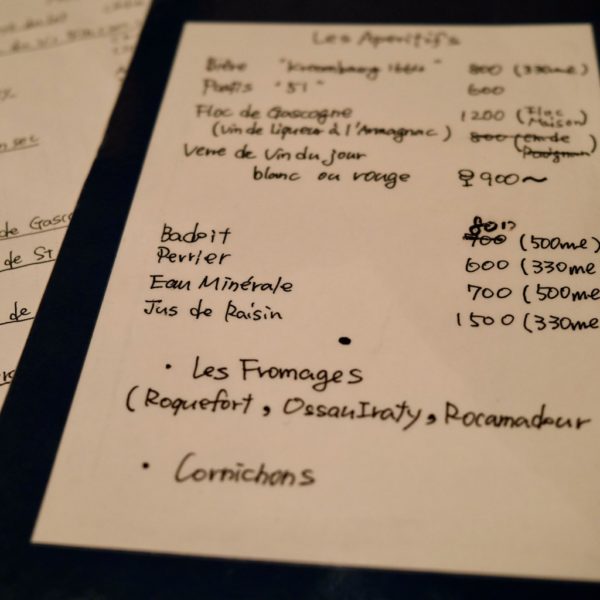 Les Aperitifs
Bière "Kronenbourg 1664" 800 (330ml)
Pastis "51" 600
Floc de Gascogne 1200 (Floc Maison)
(Vin de Liqueur à l'Armagnac) 800
Verre de Vin du jour
blanc ou rouge 900~
Badoit 700 800 (500ml)
Perrier 600 (330ml
Eau Minérale 700 (500ml
Jus de Raisin 1500 (330ml
• Les Fromages
(Roquefort, OssauIraty, Rocamadour
• Cornichons
sec
de Gasco
de St
de